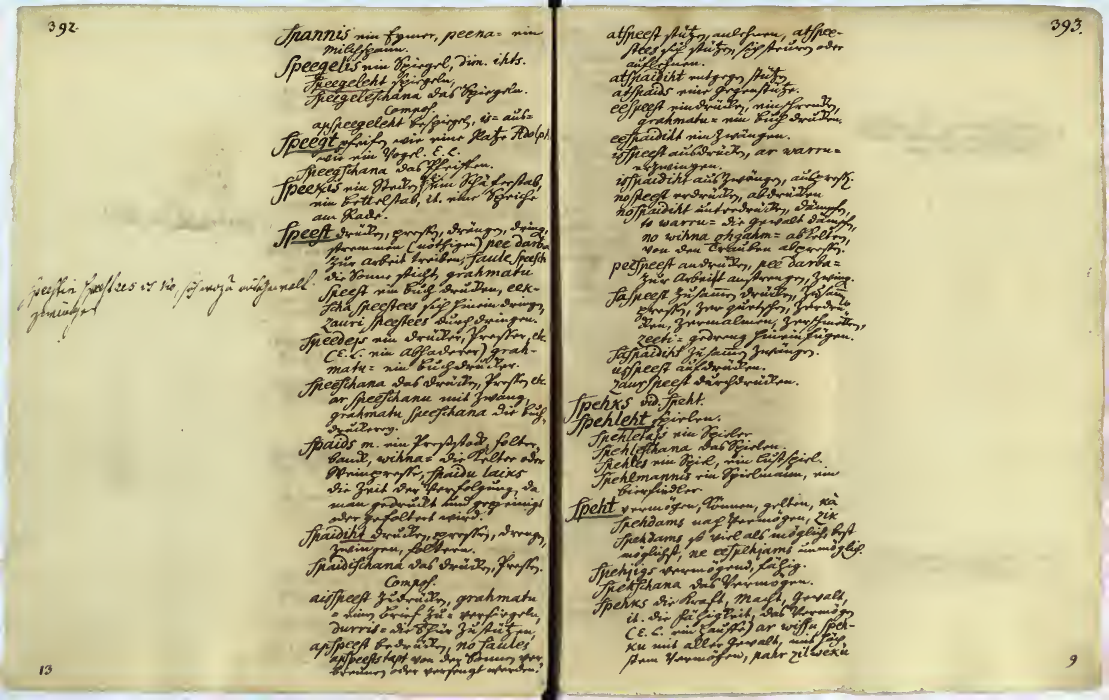 392.
Spannis ein Eymer, peena= ein
Milchspann.
Speegelis ein Spiegel, Dim. ihts.
Speegeleht spiegeln,
Speegeleschana das Spiegeln.
Compos.
apspeegeleht bespiegel, is= aus=
Speegt pfeifen, wie eine Katze
wie ein Vogel. E. L.
Speegschana das Pfeiffen.
Speekis ein Stecken, ein Schäferstab,
ein Bettelstab, it. eine Speiche
am Rade.
Speest drücken, pressen, drängen,
stremmen (nöthigen) pee darba
zur Arbeit treiben, Saule speesch
die Sonne sticht, grahmatu
speest ein Buch drucken, eek=
scha speestees sich hinein dringen,
zauri speestees durch dringen.
Speedejs ein Drücker, Presser, etc.
(E. L. ein) grah=
matu= ein Buchdrucker.
Speeschana das Drücken, Pressen etc.
ar speeschanu mit Zwang,
grahmatu speeschana die Buch
druckerey.
Spaids m. ein Preßstock, Folter,
bank, wihna= die Kelter oder
Weinpresse, spaidu laiks
die Zeit der Verfolgung, da
man gedruckt und gepeinigt
oder gefoltert wird.
Spaidiht drücken, pressen, drengen,
zwingen, foltern.
Spaidischana das Drücken, Pressen.
Compos.
aisspeest zudrücken, grahmatu
= einen Brief zu= versiegeln,
durris= die Thür zustützen,
apspeest bedrücken, no saules
apspeests tapt von der Sonnen ver=
brennen oder versengt werden.
13
393.
atspeest stützen, anlehnen, atspee=
stees sich stützen, sich steuren oder
auflehnen.
atspaidiht entgegen stützen,
atspaids eine Gegenstütze.
eespeest eindrücken, einschrenken,
grahmatu= ein Buch drucken.
eespaidiht einzwängen.
isspeest ausdrücken, ar warru=
erzwingen.
isspaidiht auszwängen, auspressen.
nospeest erdrücken, abdrücken
nospaidiht unterdrücken, dämpfen,
to warru= die Gewalt dämpfen,
no wihna ohgahm= abkeltern,
von den Trauben abpressen.
peespeest andrücken, pee darba=
zur Arbeit anstrengen, zwing.
saspeest zusammen drücken, zusam
pressen, zerquetschen, zerdrü
cken, zermalmen, zerschmettern,
zeeti= gedreng hineinfügen.
saspaidiht zusammen zwängen.
usspeest aufdrücken.
zaurspeest durchdrücken.
Spehks vid. Speht.
Spehleht spielen.
Spehletajs ein Spieler
Spehleschana das Spielen.
Spehles ein Spiel, ein Lustspiel.
Spehlmannis ein Spielmann, ein
bierfiedler
Speht vermögen, können, gelten, kà
spehdams nach Vermögen, zik
spehdams so viel als möglich, best
möglichst, ne eespehjams unmöglich.
Spehjigs vermögend, fähig.
Spehschana das Vermögen.
Spehks die Kraft, Macht, Gewalt,
it. die Fähigkeit, das Vermögen
(E. L. ein) ar wissu speh=
ku mit aller Gewalt, mit höch
stem Vermögen, pahr zilweku
9